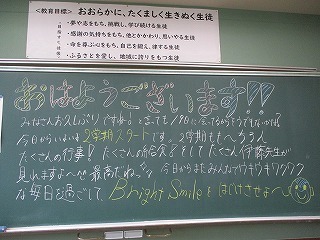 <教育目標> おおらかに、たくましく生きぬく生徒
・夢や志をもち、挑戦し、学び続ける生徒
・感謝の気持ちをもち、他とかかわり、思いやる生徒
・命を尊ぶ心をもち、自己を鍛え、律する生徒
・ふるさとを愛し、地域に誇りをもつ生徒
おはようございます!!
みなさんお久しぶりですね!
今日からいよいよ2学期スタートです。2学期も
たくさんの行事! たくさんの給食? そして たくさん伊藤先生が
見れますよ~ 最高だね。 今日からまたみんなでウキウキワクワク
な毎日を過ごして、Bright Smileをはじけさせよ~